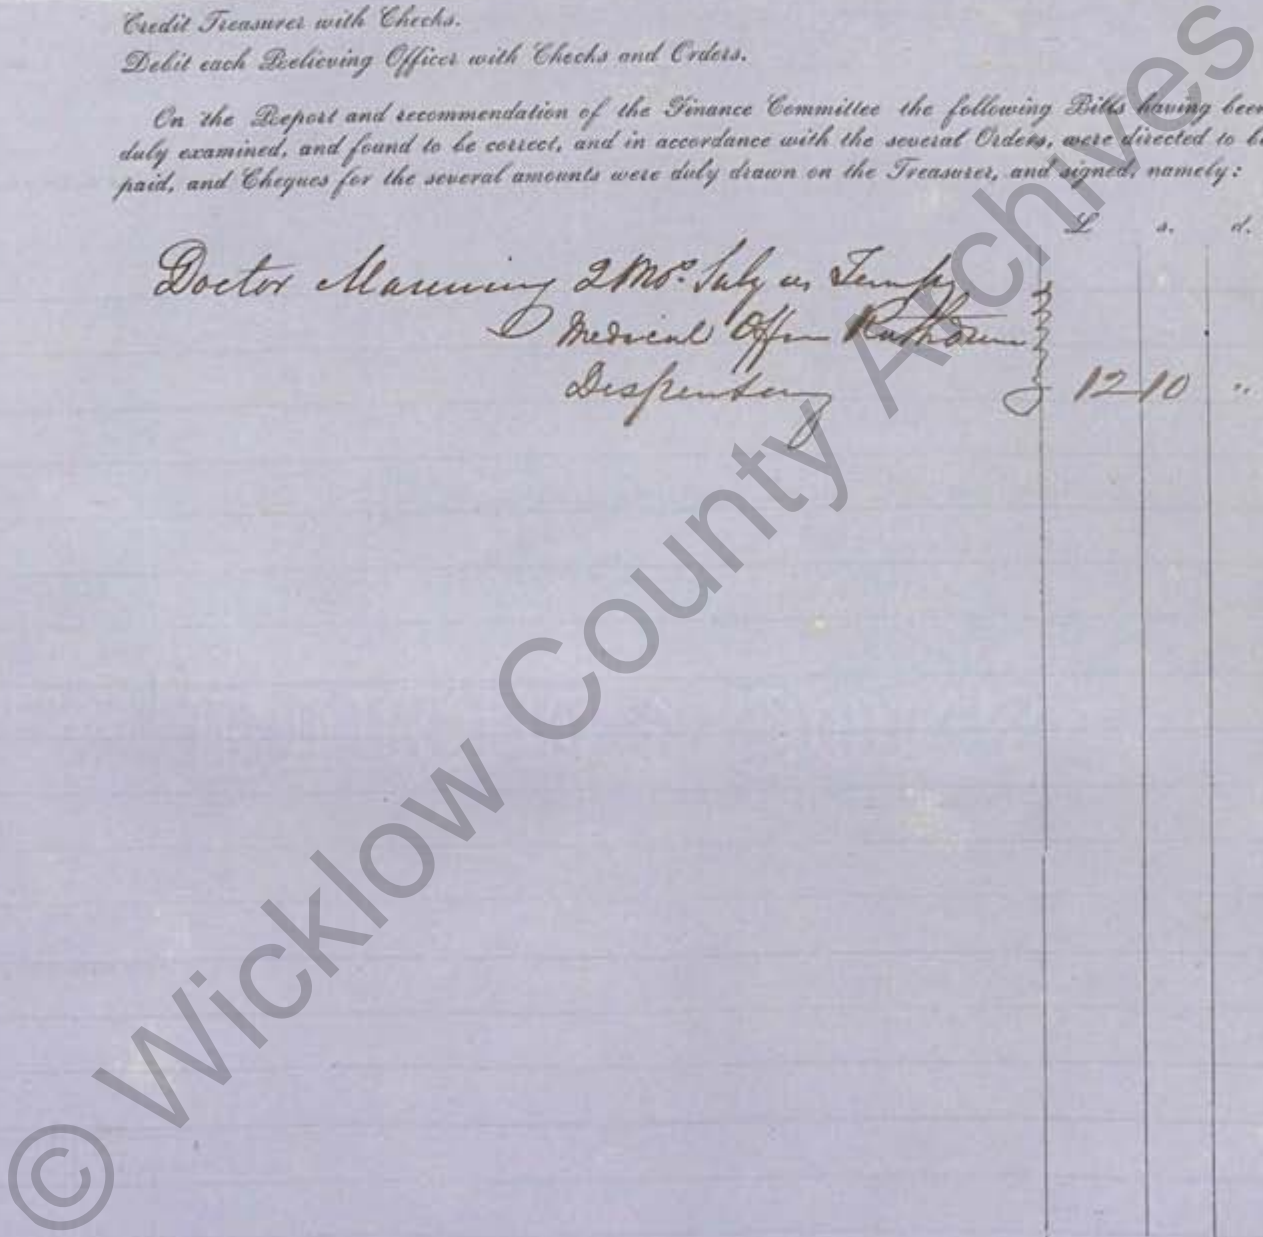 Credit Treasurer with Checks.
Debit each Relieving Officer with Checks and Orders.
On the Report and recommendation of the Finance Committee the following Bills having been
duly examined, and found to be correct, and in accordance with the several Orders, were directed to be
paid, and Cheques for the several amounts were duly drawn on the Treasurer, and signed, namely:
£ s. d.
Doctor Manning 2 Mos. Saly as Tempy
Medical Offr Rathdrum
Dispensary 12 10 "
© Wicklow County Archives